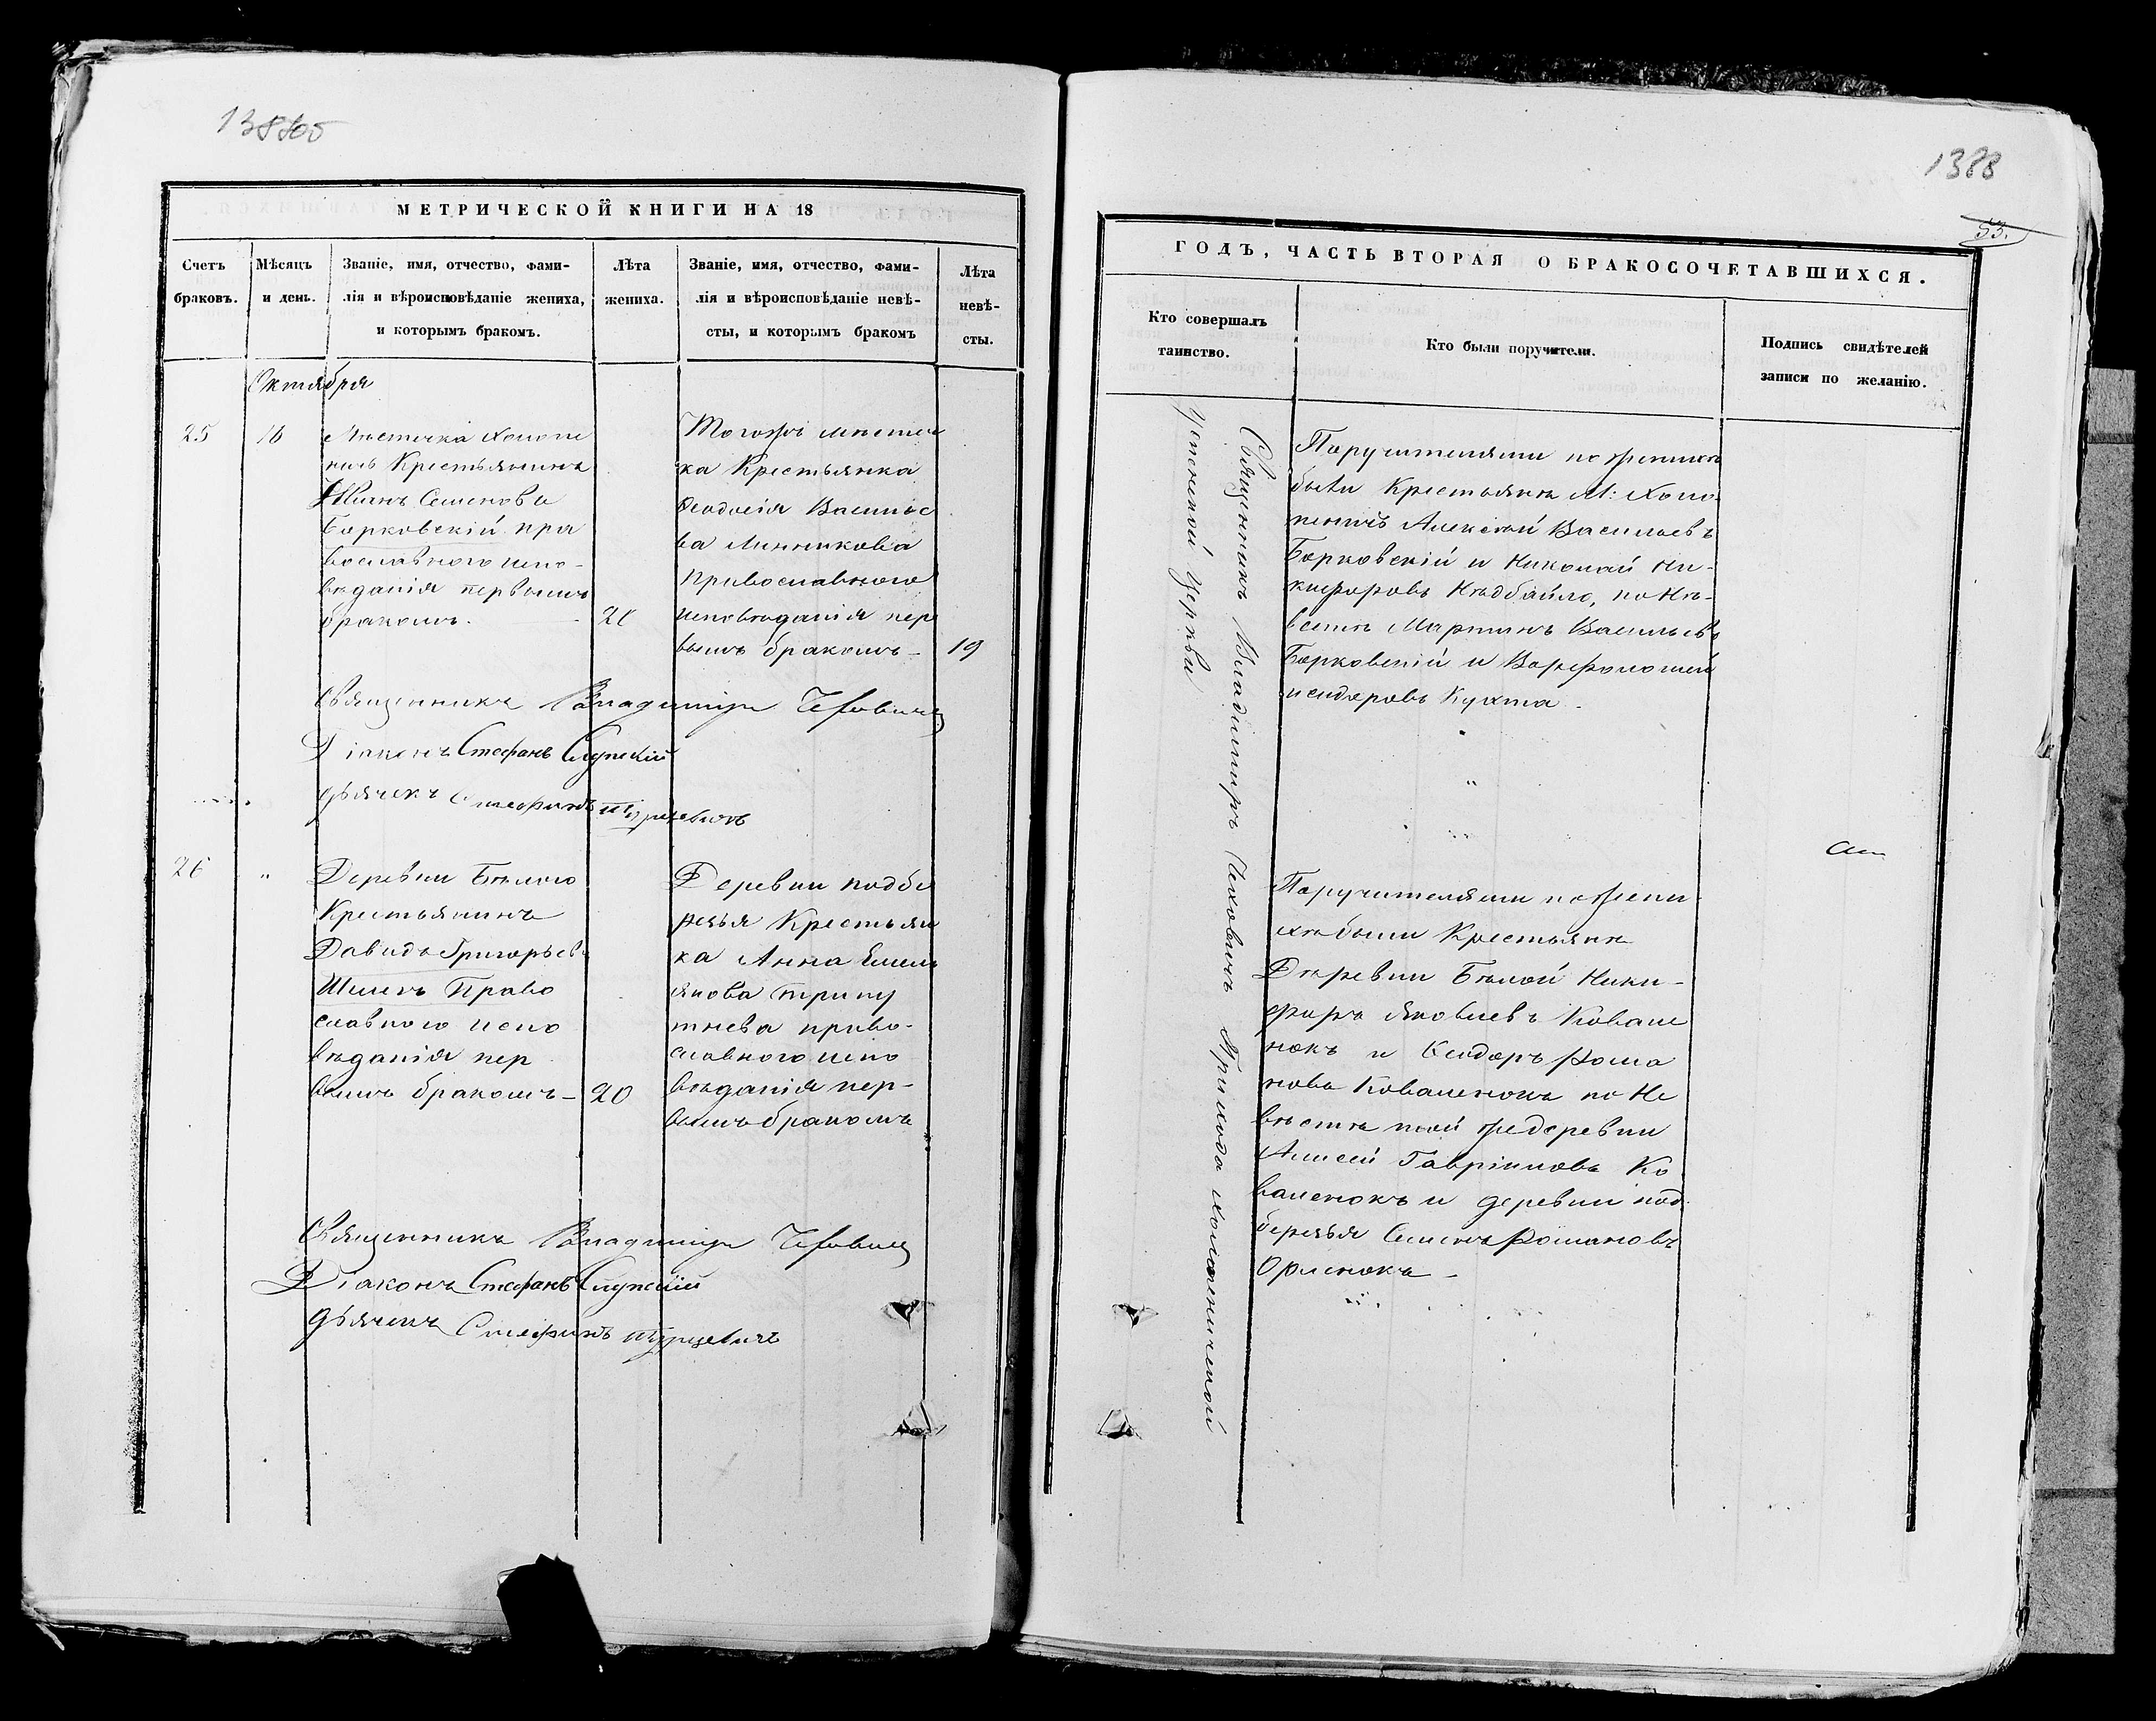 1388об
1388
53.
МЕТРИЧЕСКОЙ КНИГИ НА 18
Счетъ
браковъ.
Мѣсяцъ
и день.
Званіе, имя, отчество, фами-
лія и вѣроисповѣданіе жениха,
и которымъ бракомъ.
Лѣта
жениха.
Званіе, имя, отчество, фами-
лія и вѣроисповѣданіе невѣ-
сты, и которымъ бракомъ
Лѣта
невѣ-
сты.
Октября
25
16
Мѣстечка Холопе
ничъ Крестьянинъ
Иванъ Семеновъ
Борковскій пра
вославного испо-
вѣданія первымъ
бракомъ.
Тогожъ мѣстеч
ка Крестьянка
Феодосія Василье
ва Линникова
Православного
исповѣданія пер
вымъ бракомъ
19
Священникъ Владимиръ Чеховичъ
Діаконъ Стефанъ Слупскій
дьячекъ Стефанъ
26
"
Деревни Бѣлого
Крестьянинъ
Давидъ Григорьевъ
Шилъ Право
славного испо
вѣданія пер
вымъ бракомъ
20
Деревни подбе
резья Крестьян
ка Анна Емель
янова
право-
славного испо
вѣданія пер-
вымъ бракомъ
Священникъ Владимиръ Чеховичъ
Діаконъ Стефанъ Слупскій
дьячекъ Стефанъ
ГОДЪ, ЧАСТЬ ВТОРАЯ О БРАКОСОЧЕТАВШИХСЯ.
Кто совершалъ
таинство.
Кто были поручители.
Подпись свидѣтелей
записи по желанію.
Священникъ Владимиръ Чеховичъ Прихода Холопеничской
Успенской Церкви
Поручителями по женихѣ
были Крестьяне М: Холо
пеничъ Алексѣй Васильевъ
Борковскій и Николай Ни-
кифоровъ Недбайло, по Не-
вестѣ Мартинъ Васильевъ
Борковскій и Варфоломей
Исидоровъ Кухта
Поручителями по жени
хѣ были Крестьяне
Деревни Бѣлой Ники-
форъ Яковлевъ Ковале
нокъ и Сидоръ Рома
новъ Коваленокъ по Не
вѣстѣ той же деревни
Гавріиловъ Ко
валенокъ и деревни под
березья Семенъ Романовъ
Орленокъ